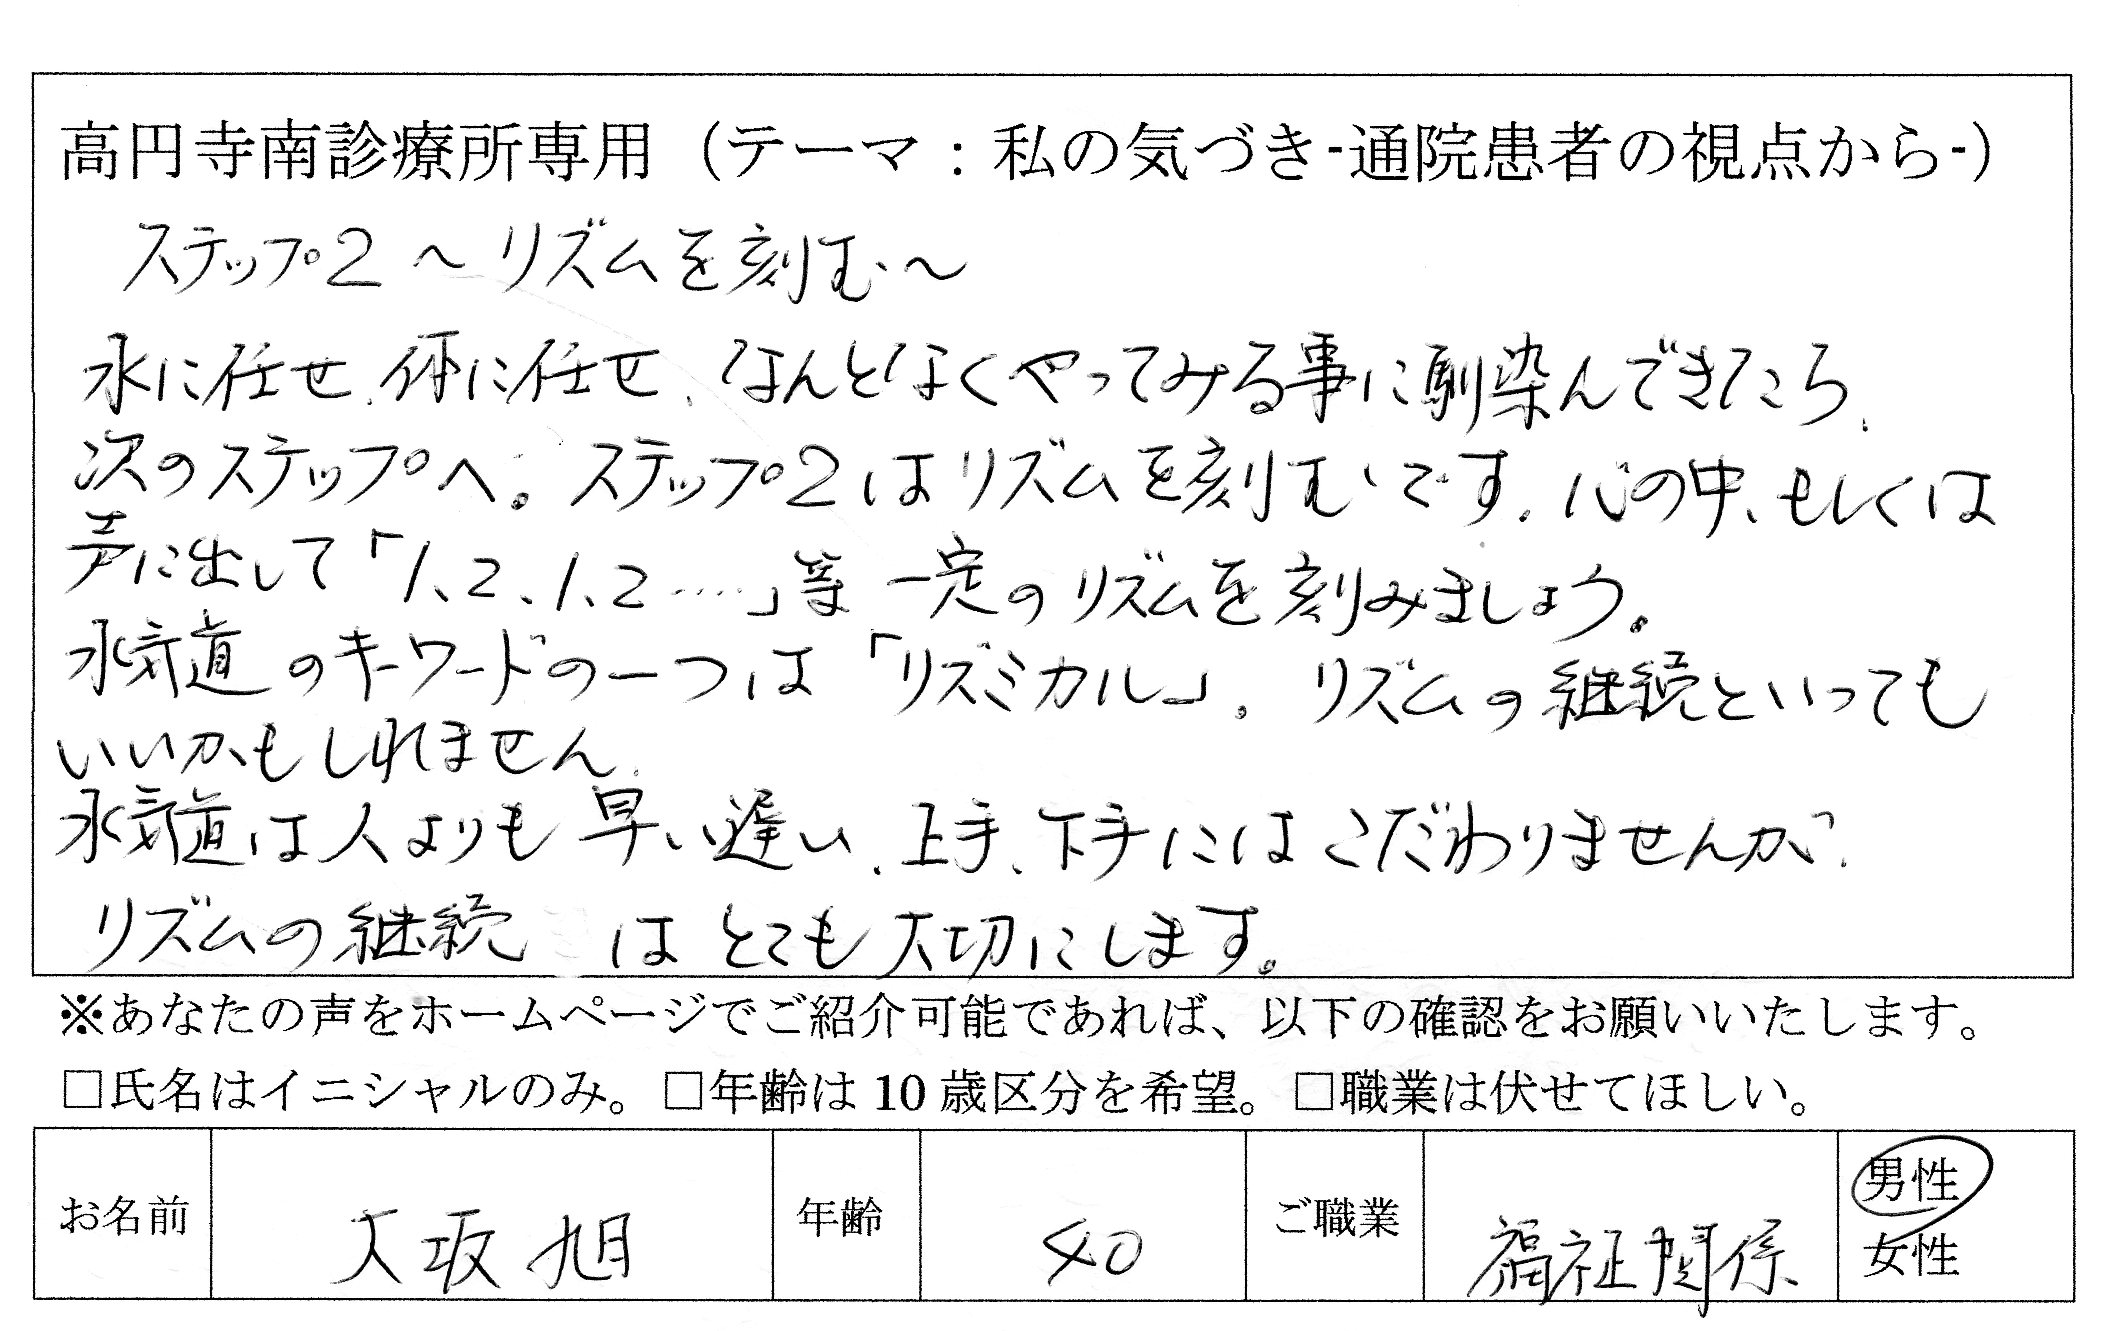 高円寺南診療所専用（テーマ：私の気づき-通院患者の視点から-）
ステップ2～リズムを刻む～
水に任せ、体に任せ、なんとなくやってみる事に馴染んできたら、
次のステップへ。ステップ2はリズムを刻むです。心の中、もしくは
声に出して「1、2、1、2……」等 一定のリズムを刻みましょう。
水気道のキーワードの一つは「リズミカル」。リズムの継続といっても
いいかもしれません。
水気道は人よりも早い遅い、上手、下手にはこだわりませんが、
リズムの継続 はとても大切にします。
※あなたの声をホームページでご紹介可能であれば、以下の確認をお願いいたします。
□氏名はイニシャルのみ。□年齢は 10 歳区分を希望。□職業は伏せてほしい。
お名前 大坂 旭 年齢 40 ご職業 福祉関係 男性
女性